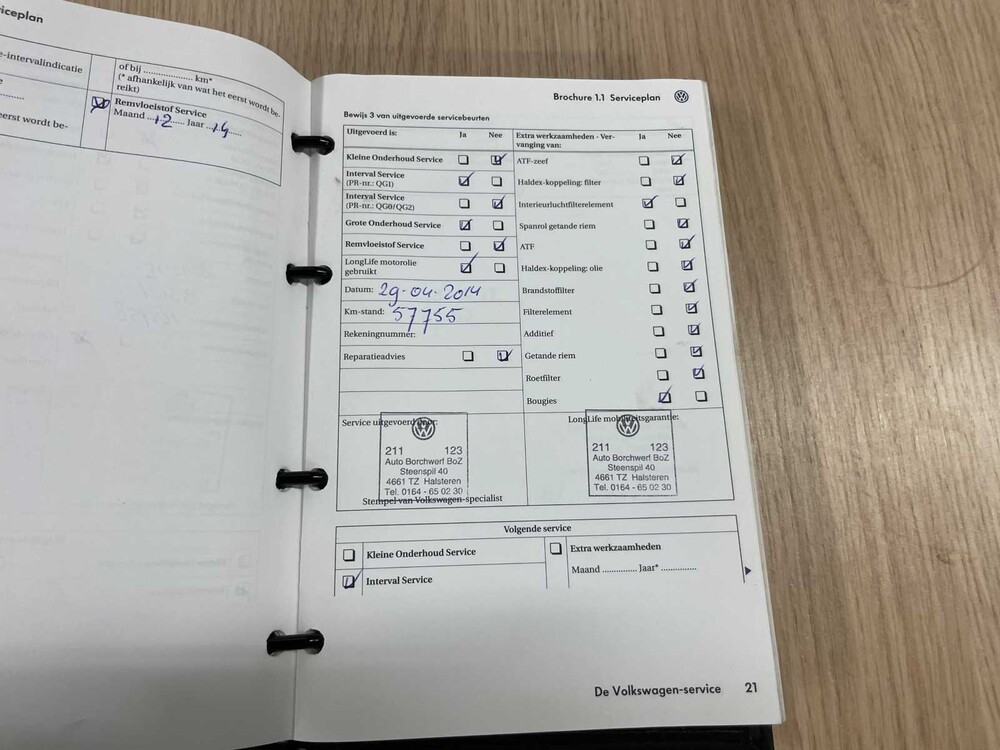 iceplan
e-intervalindicatie
eerst wordt be-
of bij .................... km*
(* afhankelijk van wat het eerst wordt be-
reikt)
Remvloeistof Service
Maand ...12..... Jaar ..14.....
Brochure 1.1 Serviceplan
Bewijs 3 van uitgevoerde servicebeurten
Uitgevoerd is: Ja Nee
Kleine Onderhoud Service
Interval Service
(PR-nr.: QG1)
Interval Service
(PR-nr.: QG0/QG2)
Grote Onderhoud Service
Remvloeistof Service
LongLife motorolie
gebruikt
Datum: 29-04-2014
Km-stand: 57755
Rekeningnummer:
Reparatieadvies
Extra werkzaamheden - Ver-
vanging van: Ja Nee
ATF-zeef
Haldex-koppeling: filter
Interieurluchtfilterelement
Spanrol getande riem
ATF
Haldex-koppeling: olie
Brandstoffilter
Filterelement
Additief
Getande riem
Roetfilter
Bougies
Service uitgevoerd door:
211 123
Auto Borchwerf BoZ
Steenspil 40
4661 TZ Halsteren
Tel. 0164 - 65 02 30
Stempel van Volkswagen-specialist
LongLife mobiliteitsgarantie:
211 123
Auto Borchwerf BoZ
Steenspil 40
4661 TZ Halsteren
Tel. 0164 - 65 02 30
Volgende service
Kleine Onderhoud Service
Interval Service
Extra werkzaamheden
Maand .............. Jaar* ..............
De Volkswagen-service 21